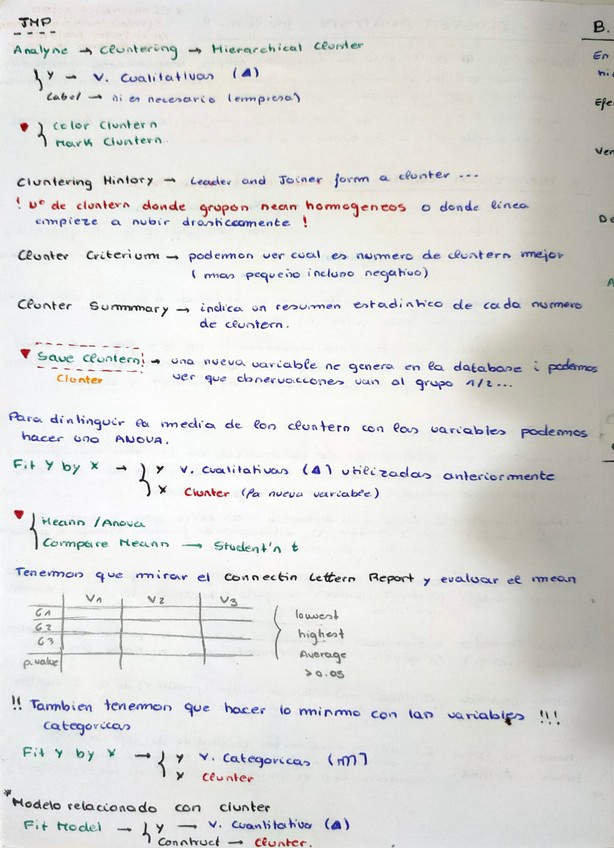 JMP
Analyse → Clustering → Hierarchical Cluster
Y → V. Cualitativas (▲)
Label → ni es necesario (empresa)
♥ Color Clusters
Mark Clusters
Clustering History → Leader and Joiner form a cluster ...
! Nº de clusters donde grupos sean homogeneos o donde linea
empieze a subir drasticamente !
Cluster Criterium → podemos ver cual es numero de clusters mejor
(mas pequeño incluso negativo)
Cluster Summmary → indica un resumen estadistico de cada numero
de clusters.
▼ Save Clusters! → una nueva variable se genera en la database i podemos
Cluster ver que observaciones van al grupo 1/2...
Para distinguir la media de los clusters con las variables podemos
hacer una ANOVA.
Fit Y by X → Y V. Cualitativas (▲) utilizadas anteriormente
X Cluster (la nueva variable)
♥ Means / Anova
Compare Means → Student's t
Tenemos que mirar el Connectin Letters Report y evaluar el mean
V1 V2 V3
G1 lowest
G2 highest
G3 Average
p.value >0.05
!! Tambien tenemos que hacer lo mismo con las variables !!!
categoricas
Fit Y by X → Y V. Categoricas (m)
X Cluster
*Modelo relacionado con cluster
Fit Model → Y → V. Cuantitativa (▲)
Construct → Cluster.
B.
En
hi
Efe
Ver
De
A